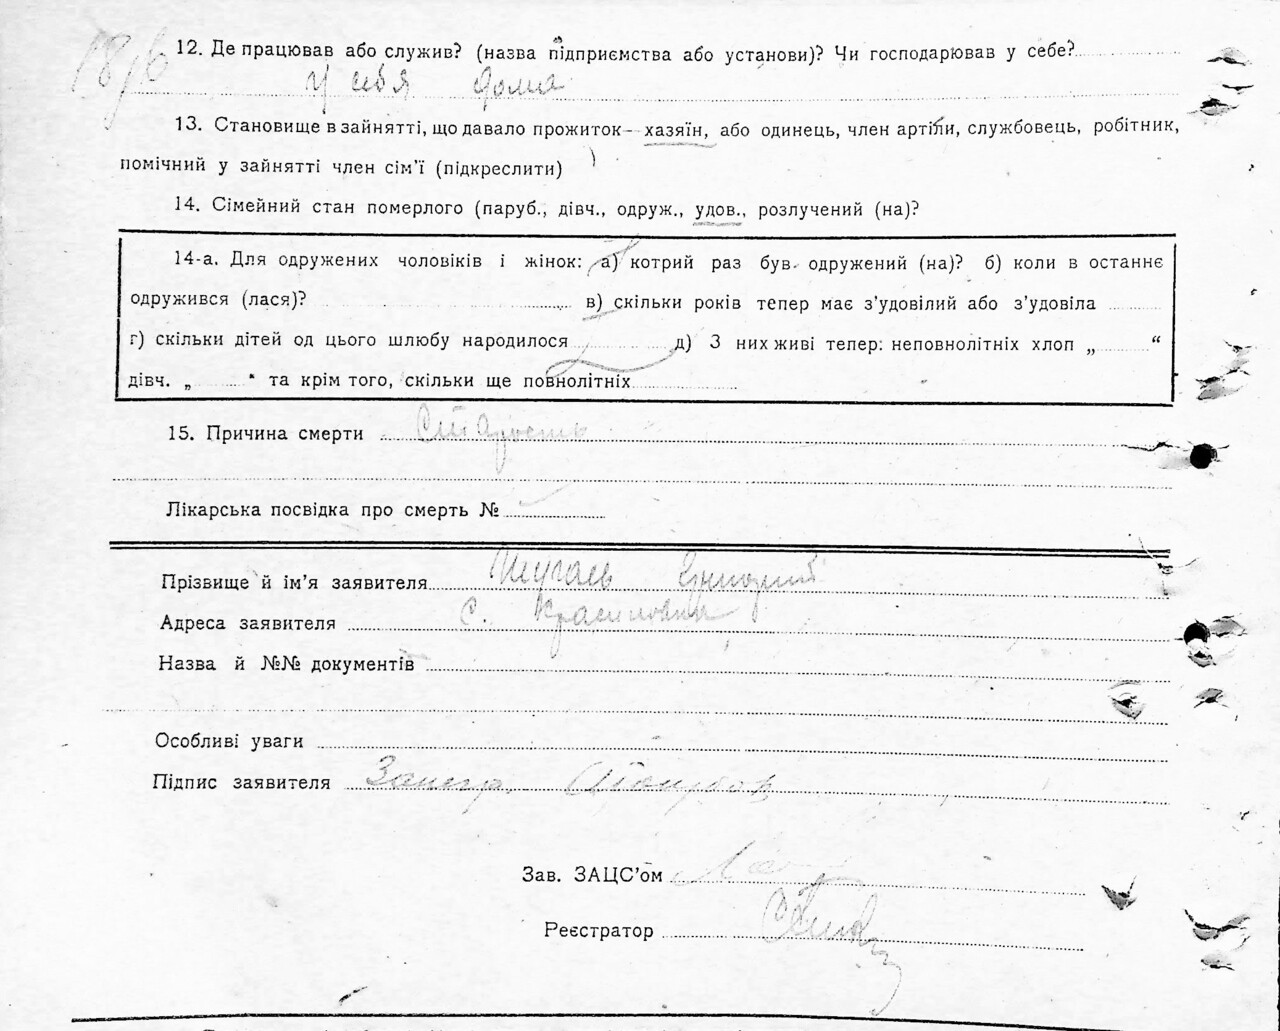 12. Де працював або служив? (назва підприємства або установи)? Чи господарював у себе?
у себя дома
13. Становище в зайнятті, що давало прожиток — хазяїн, або одинець, член артіли, службовець, робітник,
помічний у зайнятті член сім'ї (підкреслити)
14. Сімейний стан померлого (паруб., дівч., одруж., удов., розлучений (на)?
14-а. Для одружених чоловіків і жінок: а) котрий раз був одружений (на)? б) коли в останнє
одружився (лася)? в) скільки років тепер має з'удовілий або з'удовіла
г) скільки дітей од цього шлюбу народилося д) З них живі тепер: неповнолітніх хлоп „ “
дівч. „ “ та крім того, скільки ще повнолітніх
15. Причина смерти Старость
Лікарська посвідка про смерть №
Прізвище й ім'я заявителя
Адреса заявителя с.
Назва й №№ документів
Особливі уваги
Підпис заявителя
Зав. ЗАЦС'ом
Реєстратор